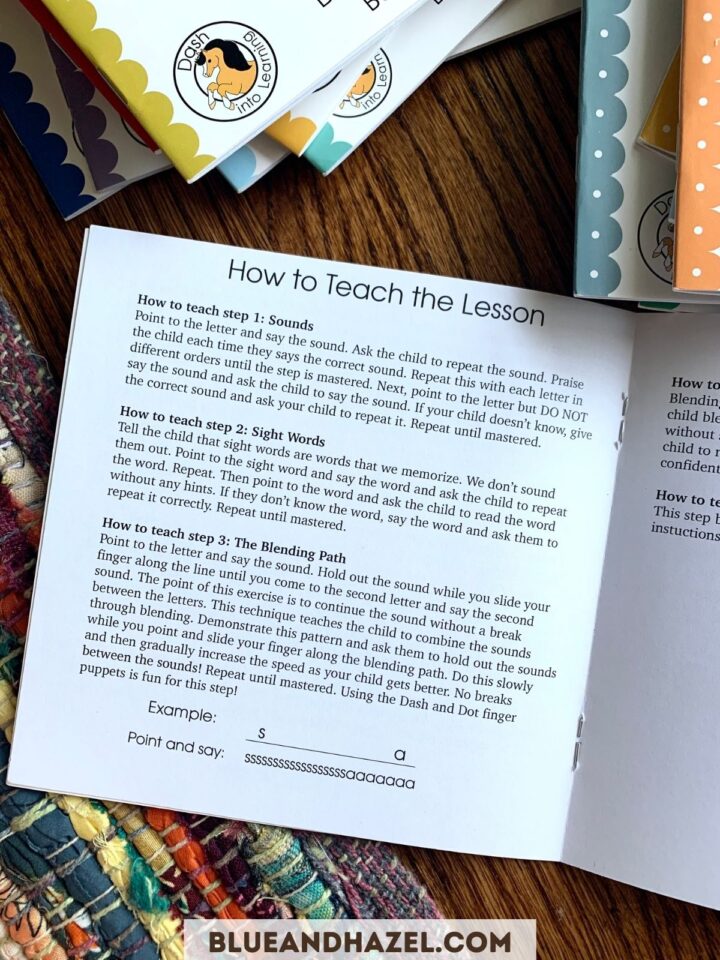 Dash
into Learning
into Learning
Das
How to Teach the Lesson
How to teach step 1: Sounds
Point to the letter and say the sound. Ask the child to repeat the sound. Praise
the child each time they says the correct sound. Repeat this with each letter in
different orders until the step is mastered. Next, point to the letter but DO NOT
say the sound and ask the child to say the sound. If your child doesn't know, give
the correct sound and ask your child to repeat it. Repeat until mastered.
How to teach step 2: Sight Words
Tell the child that sight words are words that we memorize. We don't sound
them out. Point to the sight word and say the word and ask the child to repeat
the word. Repeat. Then point to the word and ask the child to read the word
without any hints. If they don't know the word, say the word and ask them to
repeat it correctly. Repeat until mastered.
How to teach step 3: The Blending Path
Point to the letter and say the sound. Hold out the sound while you slide your
finger along the line until you come to the second letter and say the second
sound. The point of this exercise is to continue the sound without a break
between the letters. This technique teaches the child to combine the sounds
through blending. Demonstrate this pattern and ask them to hold out the sounds
while you point and slide your finger along the blending path. Do this slowly
and then gradually increase the speed as your child gets better. No breaks
between the sounds! Repeat until mastered. Using the Dash and Dot finger
puppets is fun for this step!
Example: s a
Point and say: ssssssssssssssssssaaaaaaa
How to
Blending
child ble
without
child to r
confident
How to te
This step b
instuctions
BLUEANDHAZEL.COM